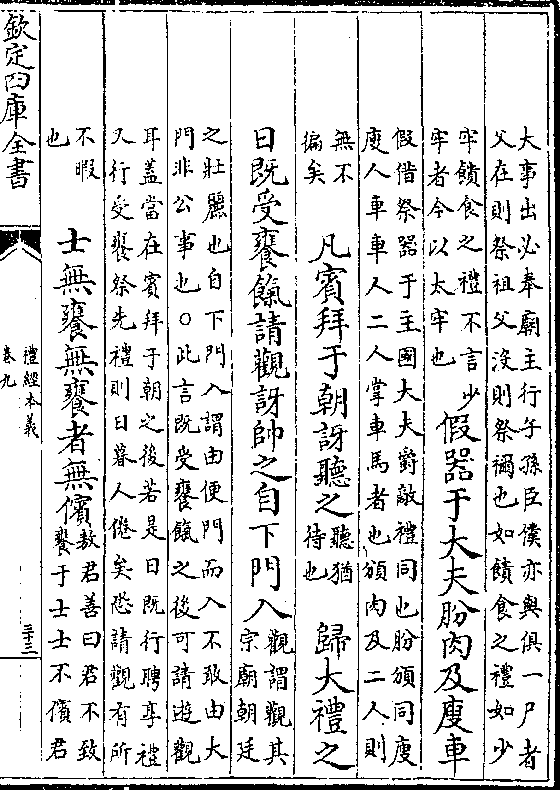 大事出必奉廟主行子孫臣僕亦與俱一尸者
父在則祭祖父沒則祭禰也如饋食之禮如少
牢饋食之禮不言少
牢者今以太牢也
假器于大夫肦肉及廋車
假借祭器于主國大夫爵敵禮同也肦頒同廋
廋人車車人二人掌車馬者也頒肉及二人則
無不
徧矣
凡賓拜于朝訝聽之
聽猶
待也
歸大禮之
日既受饔餼請觀訝帥之自下門入
觀謂觀其
宗廟朝廷
之壯麗也自下門入謂由便門而入不敢由大
門非公事也○此言既受饔餼之後可請遊觀
耳葢當在賓拜于朝之後若是日既行聘享禮
又行受饔祭先禮則日暮人倦矣恐請觀有所
不暇
也
士無饔無饔者無儐
敖君善曰君不致
饔于士士不儐君
欽定四庫全書
禮經本義
卷九
二十三